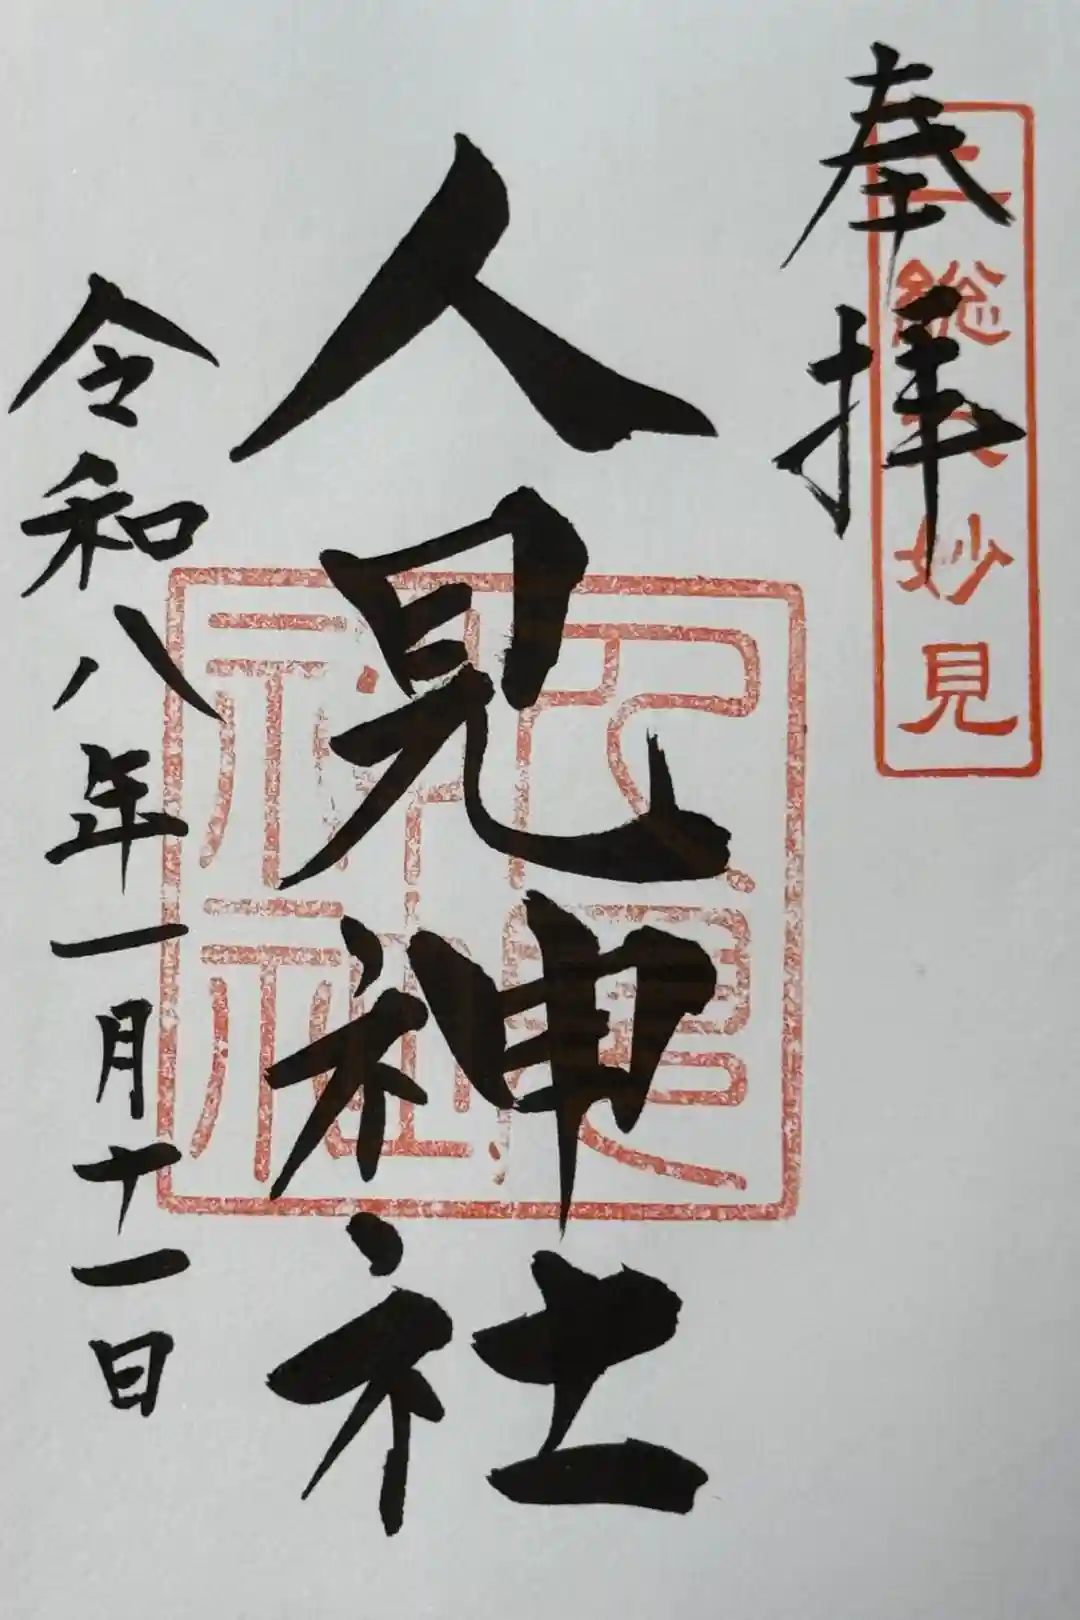 奉拝
上総大妙見
人見神社
人見神社
令和八年一月十一日